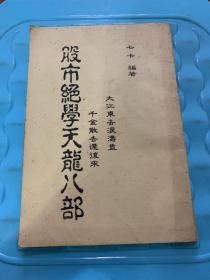 七卡 編著
大江東去浪濤盡
千金散去還復來
股市絕學天龍八部